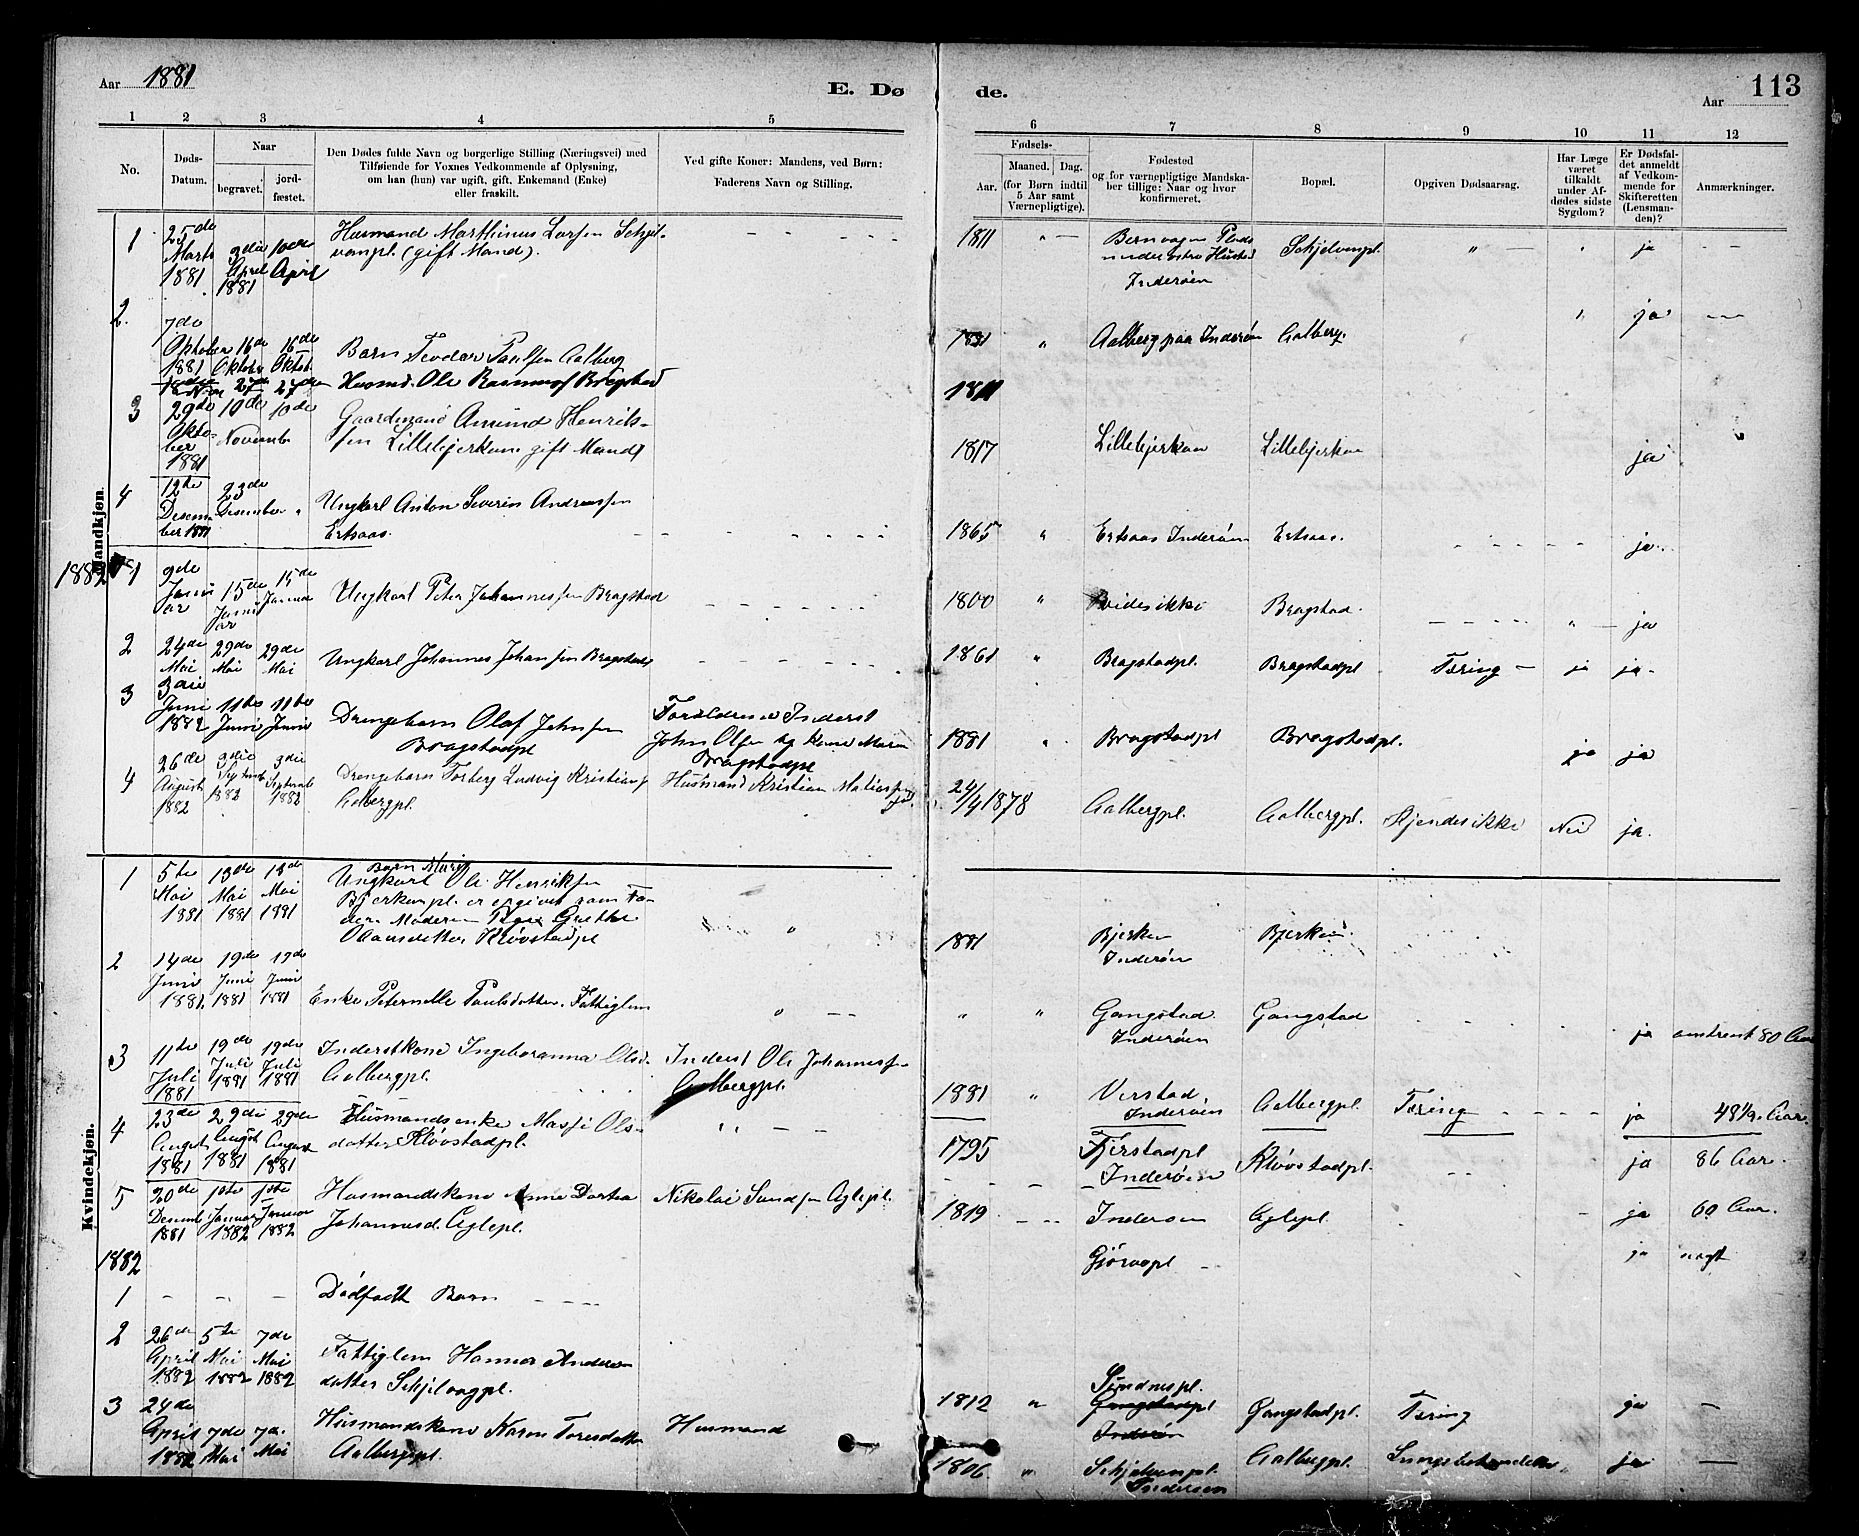 Aar 1881
E. Dø
de.
Aar
113
1 2 3 4 5
6 7 8 9 10 11 12
No.
Døds-
Datum.
Naar
begravet.
jord-
fæstet.
Den Dødes fulde Navn og borgerlige Stilling (Næringsvei) med
Tilføiende for Voxnes Vedkommende af Oplysning,
om han (hun) var ugift, gift, Enkemand (Enke)
eller fraskilt.
Ved gifte Koner: Mandens, ved Børn:
Faderens Navn og Stilling.
Fødsels-
Aar.
Maaned. Dag.
(for Børn indtil
5 Aar samt
Værnepligtige).
Fødested
og for værnepligtige Mandska-
ber tillige: Naar og hvor
konfirmeret.
Bopæl.
Opgiven Dødsaarsag.
Har Læge
været
tilkaldt
under Af-
dødes sidste
Sygdom?
Er Dødsfal-
det anmeldt
af Vedkom-
mende for
Skifteretten
(Lensman-
den)?
Anmærkninger.
Mandkjøn.
1 25de Marts 1881 3die April 1881 10de April
Husmand Marthinus Larsen Schjel-
venpl. (gift Mand).
1811 Plads under Hustad Inderøen Schjelvenpl. ja
2. 7de Oktober 1881 16de Oktober 16de Oktob.
Barn Teodor Paulsen Aalberg
1881 Aalberg paa Inderøen Aalberg. ja
27de 27de Husmd. Ole Rasmuss Bragstad
1811
3 29de Oktober 1881 10de 10de November
Gaardmand Amund Henrik-
sen Lillebjerkan gift Mand
1817 Lillebjerkan Lillebjerkan ja
4 12te Desember 1881 23de Desember
Ungkarl Anton Severin Andreassen
Ertsaas.
1865 Ertsaas Inderøen Ertsaas. ja
1882
1 9de Januar 15de Januar 15de Januar
Ungkarl Peter Johannessen Bragstad
1800 Vides ikke Bragstad. ja
2 24de Mai 29de Mai 29de Mai
Ungkarl Johannes Johansen Bragstad
1861 Bragstadpl. Bragstadpl. Tæring ja ja
3 3die Juni 1882 11te Juni 11te Juni
Drengebarn Olaf Johnsen
Bragstadpl
Forældrene Inderst
John Olsen og Kone Maren
Bragstadpl
1881 Bragstadpl Bragstadpl. ja ja
4 26de August 1882 3die Septemb 1882 3die Septemb 1882
Drengebarn Torberg Ludvig Kristians
Aalbergpl.
Husmand Kristian Matiassen
24/4 1878 Aalbergpl. Aalbergpl. Kjendes ikke Nei ja.
Kvindekjøn.
1 5te Mai 1881 13de Mai 1881 13de Mai 1881
Barn Marie
Ungkarl Ole Henriksen
Bjerkenpl. er opgivet som Fa-
der. Moderen Grethe
Olausdatter Kløvstadpl
1881 Bjerken Inderøen Bjerken
2 14de Juni 1881. 19de Juni 1881 19de Juni 1881
Enke Peternelle Paulsdatter. Fattiglem
Gangstad. Inderøen Gangstad ja omtrent 80 Aar
3 11te Juli 1881 19de Juli 1881 19de Juli 1881
Inderstkone Ingeboranna Olsd.
Aalbergpl.
Inderst Ole Johannessen
Aalbergpl.
1881 Verstad Inderøen Aalbergpl. Tæring ja 48½ Aar.
4 23de August 1881 29de August 1881 29de August 1881
Husmandsenke Massi Ols-
datter Kløvstadpl.
1795 Inderøen Kløvstadpl. ja 86 Aar.
5 20de Desemb 1881 1ste Januar 1882 1ste Januar 1882
Husmandskone Anna Dortea
Johannesd. Aglepl.
Nikolai Sundsen Aglepl.
1819 Inderøen Aglepl ja 60 Aar.
1882
Gjørvapl ja
1 Dødfødt Barn
2 26de April 1882 5te Mai 1882 7de Mai 1882
Fattiglem Hanna Anders
datter Schjelvagpl.
1812 Sundnespl. Gangstadpl Inderøen Gangstadpl. Tæring ja
3 24de April 1882 7de Mai 7de Mai
Husmandskone Karen Toresdatter
Aalbergpl.
Husmand
1806 Schjelvenpl. Inderøen Aalbergpl. ja